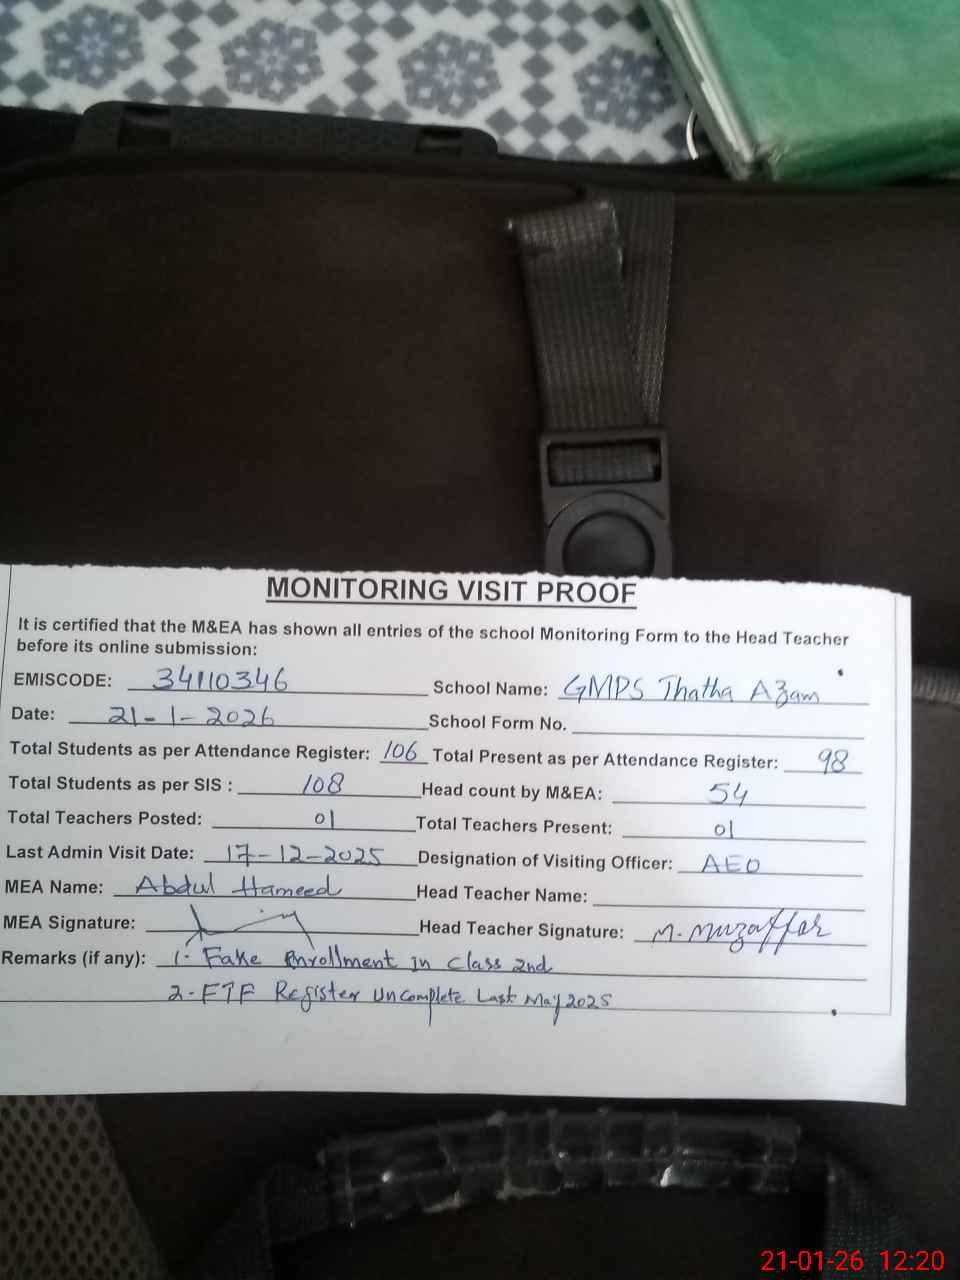 MONITORING VISIT PROOF
It is certified that the M&EA has shown all entries of the school Monitoring Form to the Head Teacher
before its online submission:
EMISCODE: 34110346 School Name: GMPS Thatha Azam
Date: 21-1-2026 School Form No.
Total Students as per Attendance Register: 106 Total Present as per Attendance Register: 98
Total Students as per SIS : 108 Head count by M&EA: 54
Total Teachers Posted: 01 Total Teachers Present: 01
Last Admin Visit Date: 17-12-2025 Designation of Visiting Officer: AEO
MEA Name: Abdul Hameed Head Teacher Name:
MEA Signature: Head Teacher Signature: M. Muzaffar
Remarks (if any): 1- Fake Enrollment in Class 2nd
2-FTF Register UnComplete Last May 2025
21-01-26 12:20